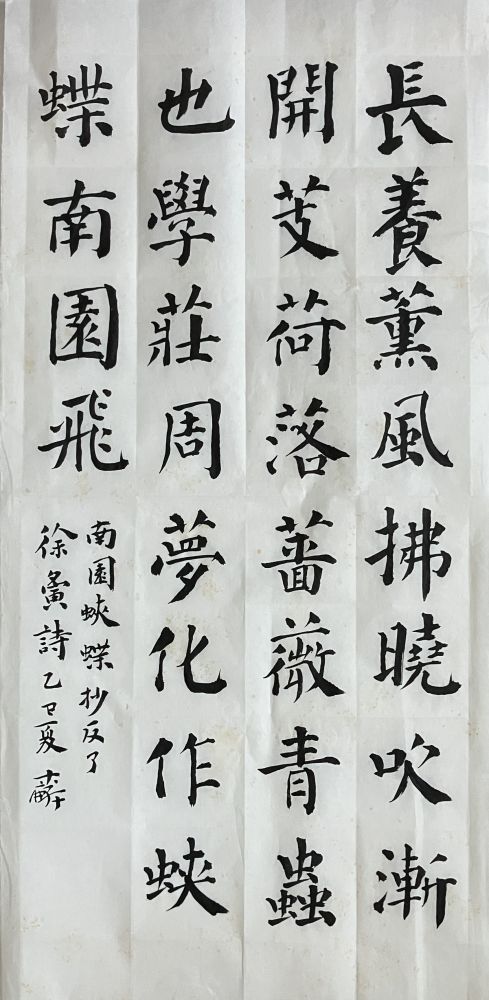 長養薰風拂曉吹漸
開芰荷落薔薇青蟲
也學莊周夢化作蛺
蝶南園飛
南園蛺蝶抄反了
徐夤詩乙巳夏